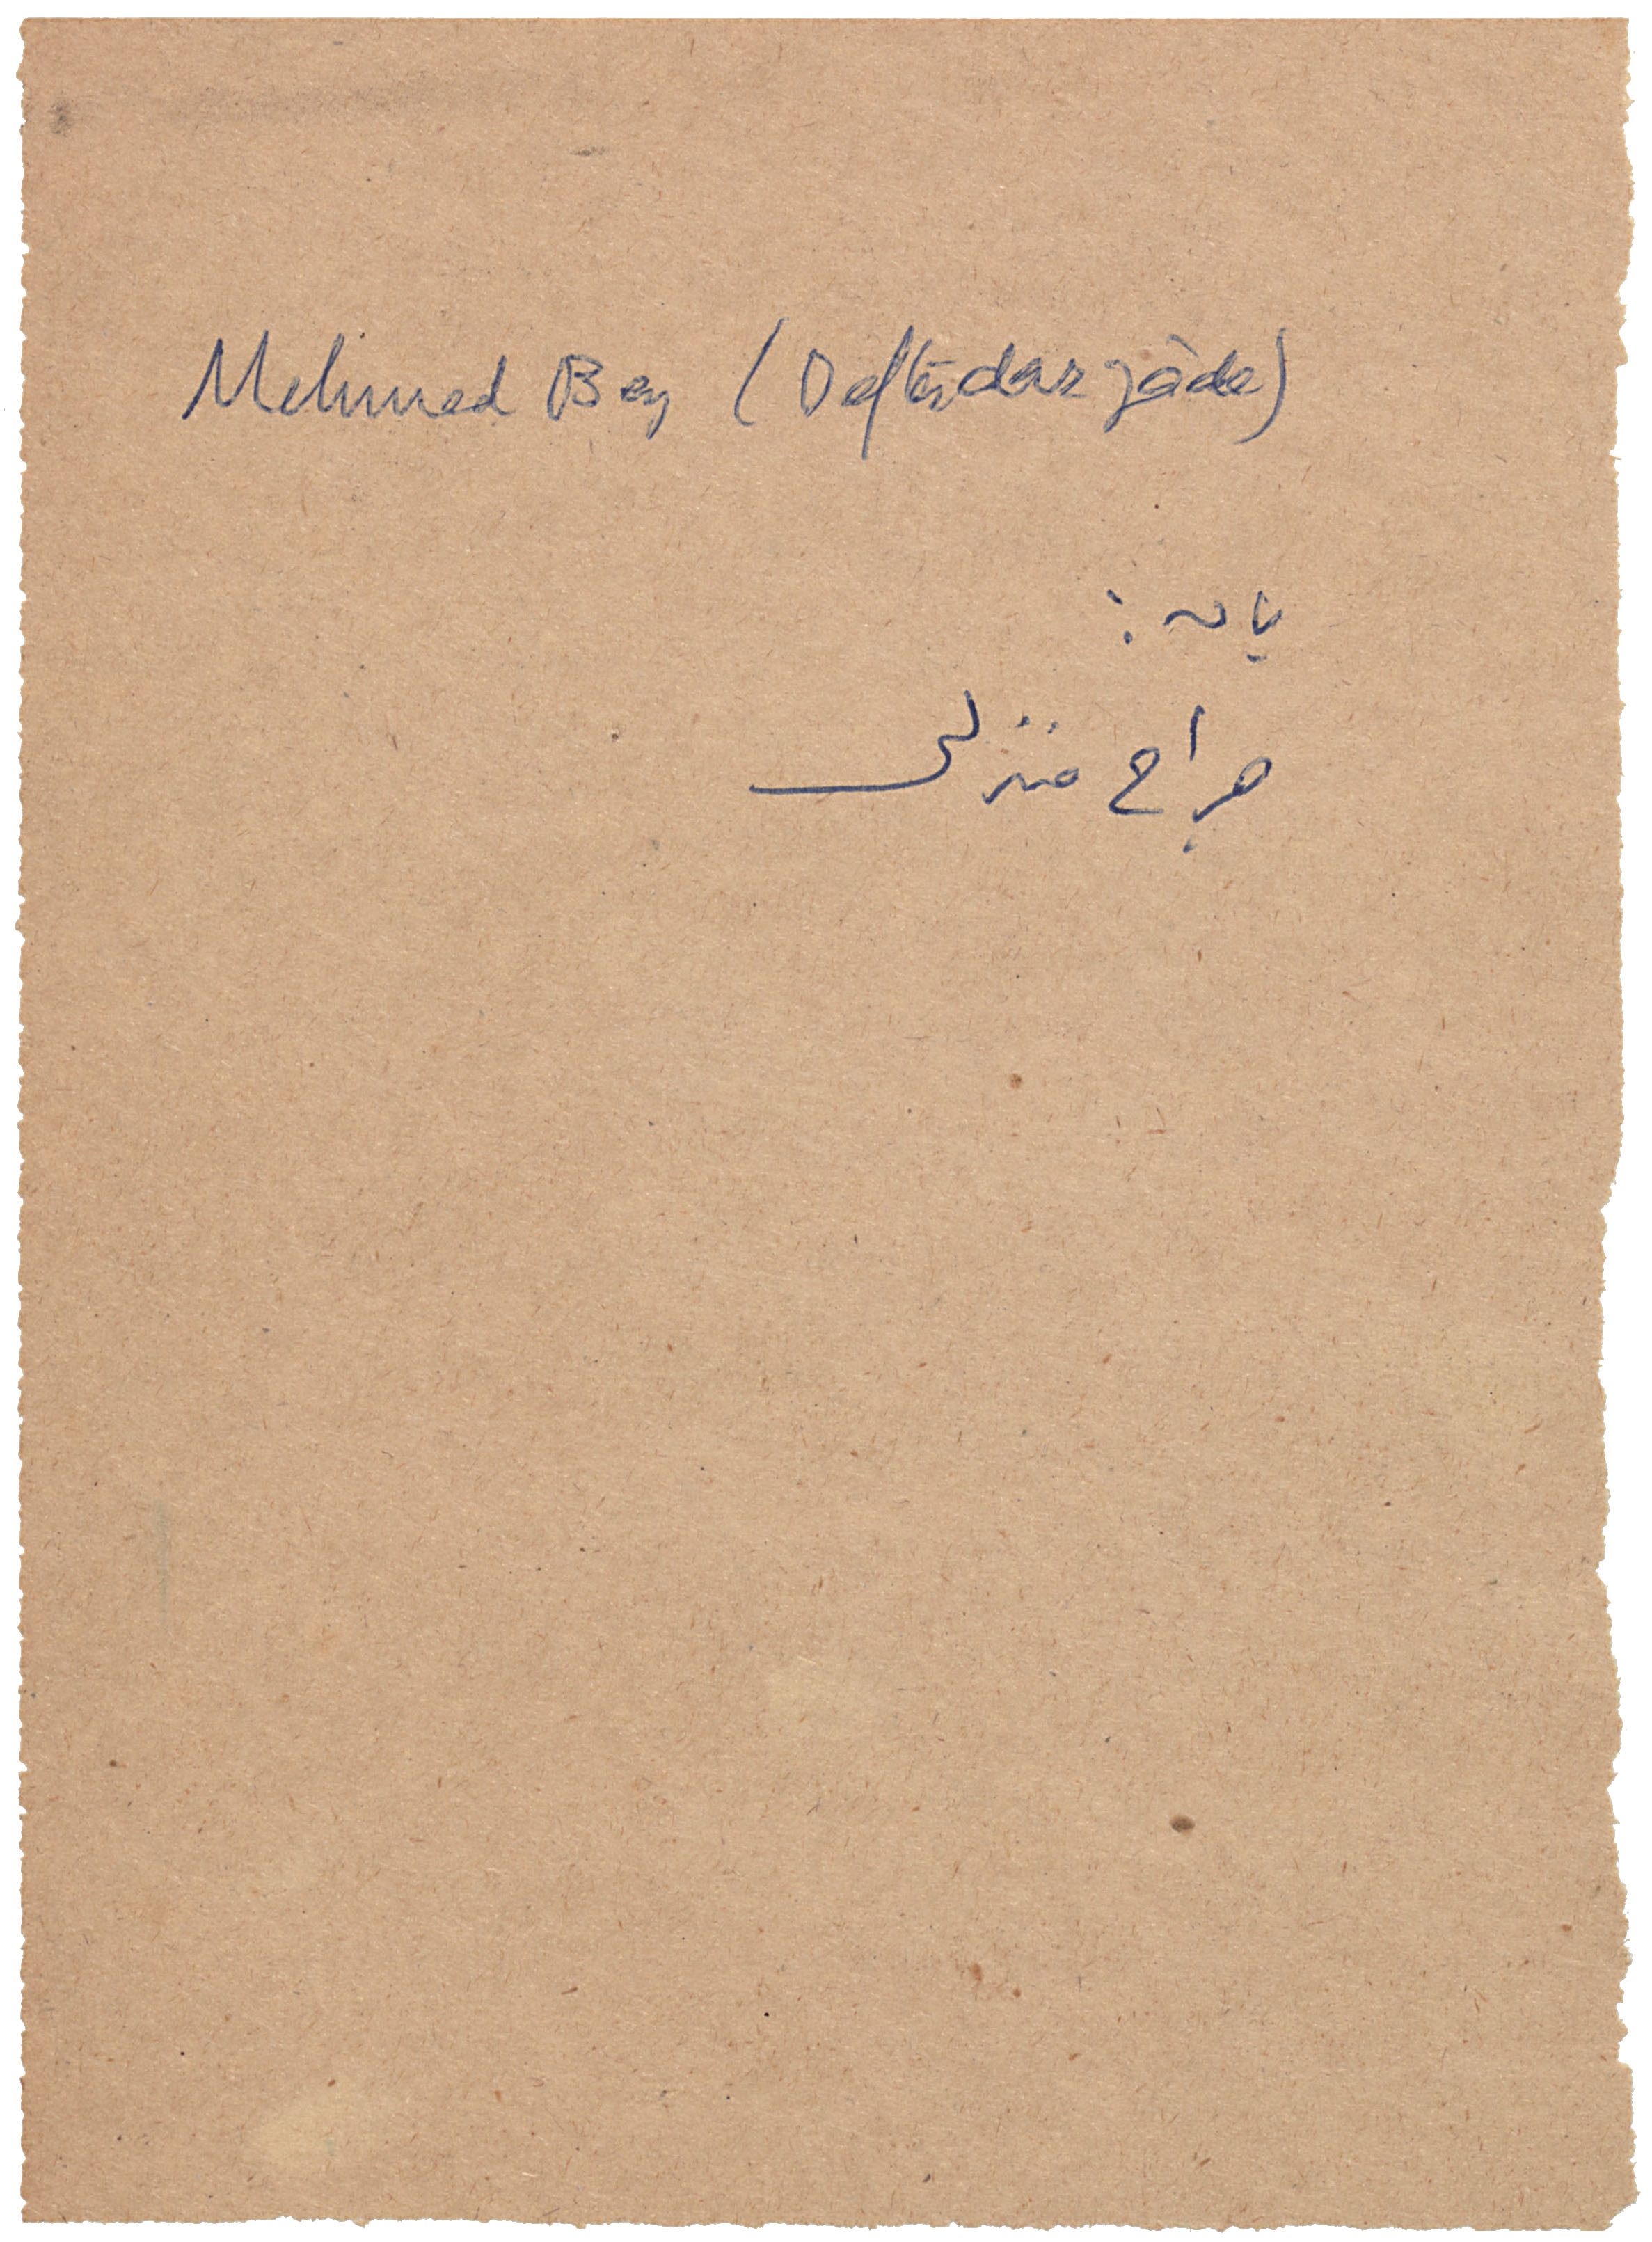 Mehmed Bey (Defterdarzâde)
پايه :
منزلى